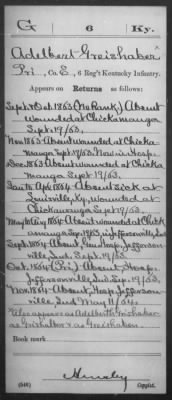 G 6 Ky.
Adelbert Greishaber
Pri, Co. E, 6 Reg't Kentucky Infantry.
Appears on Returns as follows:
Sept & Oct. 1863 (No Rank) Absent
wounded at Chickamauga
Sept. 19/63,
Nov. 1863 Absent wounded at Chicka
mauga Sept 19/63, Now in Hosp.
Dec. 1863 Absent wounded at Chicka
mauga Sept 19/63,
Apr. 1864 Absent sick at
Louisville, Ky. wounded at
Chickamauga Sept 19/63,
Aug. 1864 Absent wounded at Chick
amauga Sep. 19/63, in Jeffersonville, Ind
Sept. 1864 Absent, Gen. Hosp. Jefferson-
ville, Ind. Sept. 19/63.
Oct. 1864 (Pri) Absent, Hosp.
Jeffersonville, Ind. Sep. 19/63
Nov. 1864 Absent Hosp. Jefferson
ville Ind May 11/64.
also appears as
as Grishaber & as Greishaber.
Book mark:
(546) Copyist.